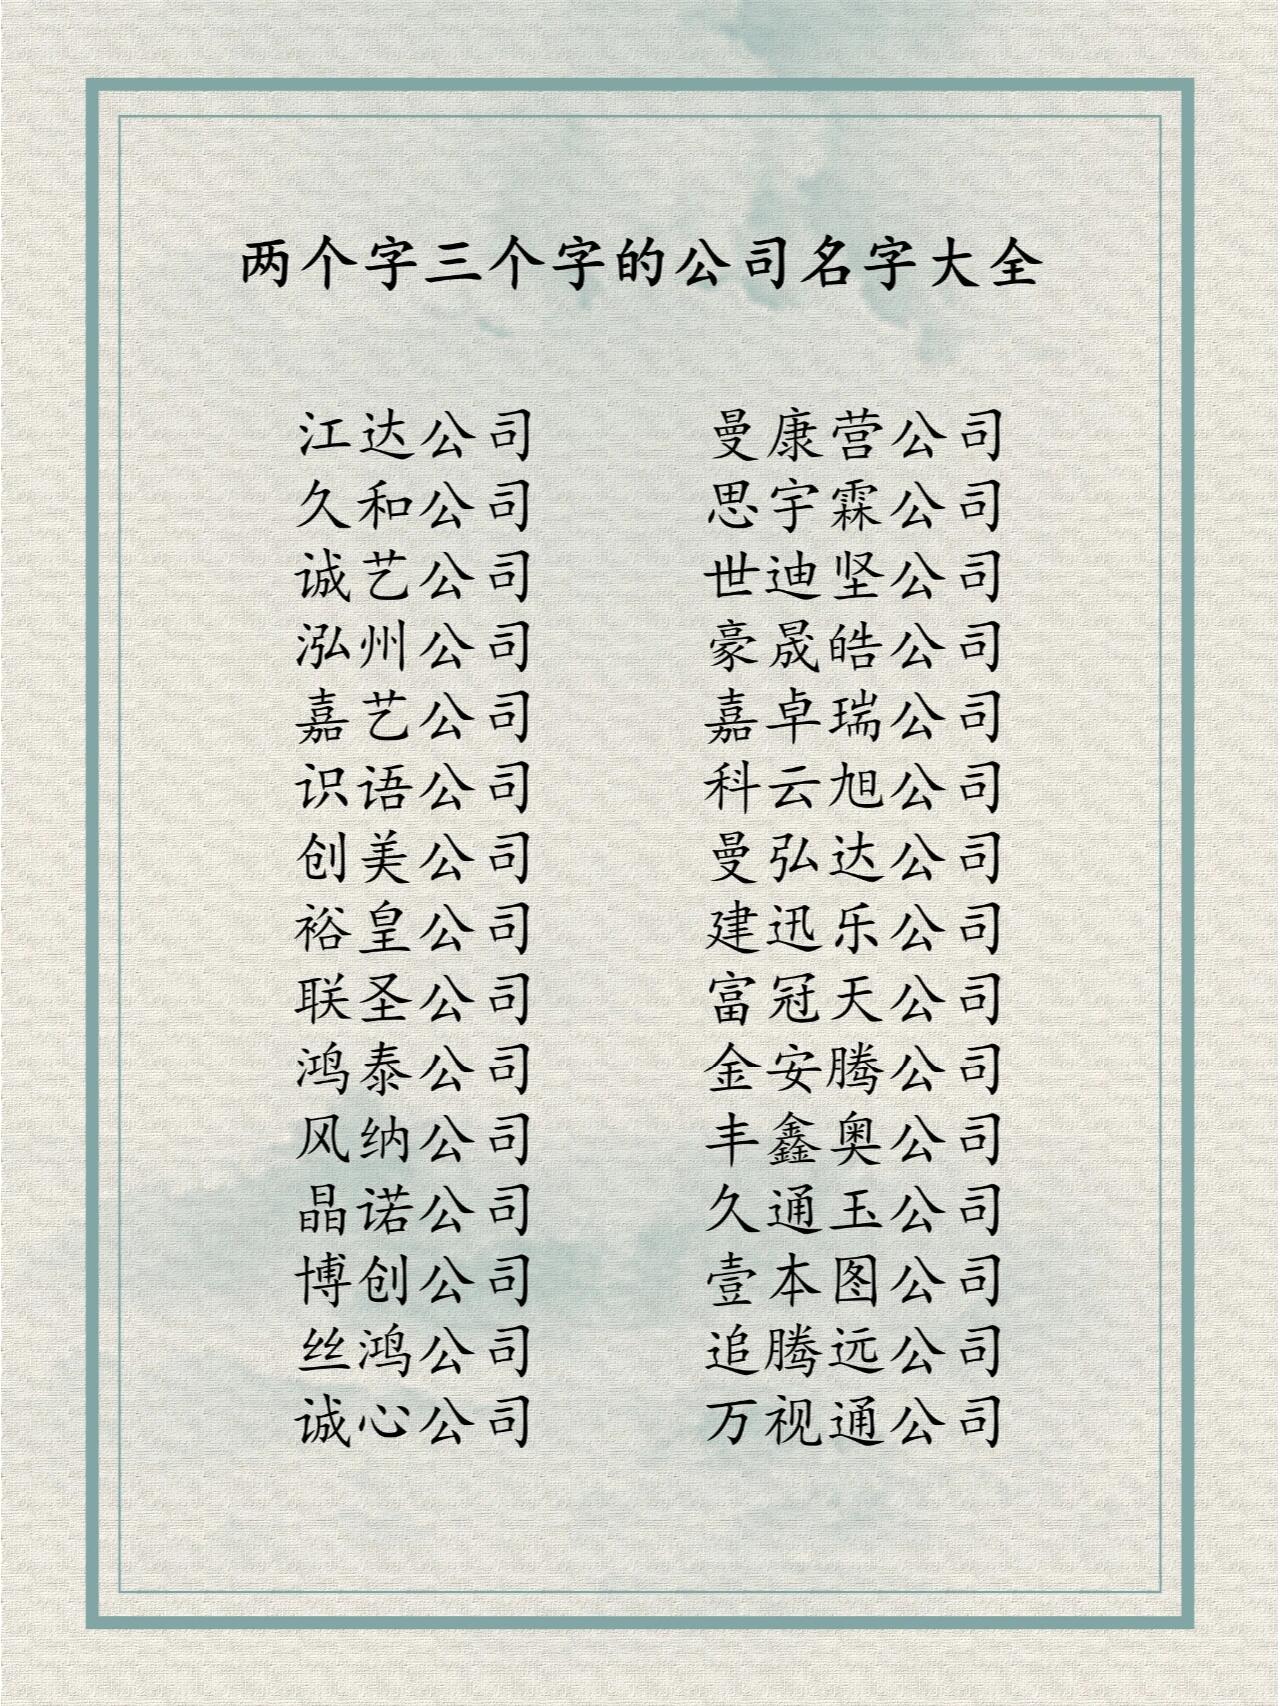 两个字三个字的公司名字大全
江达公司 曼康营公司
久和公司 思宇霖公司
诚艺公司 世迪坚公司
泓州公司 豪晟皓公司
嘉艺公司 嘉卓瑞公司
识语公司 科云旭公司
创美公司 曼弘达公司
裕皇公司 建迅乐公司
联圣公司 富冠天公司
鸿泰公司 金安腾公司
风纳公司 丰鑫奥公司
晶诺公司 久通玉公司
博创公司 壹本图公司
丝鸿公司 追腾远公司
诚心公司 万视通公司